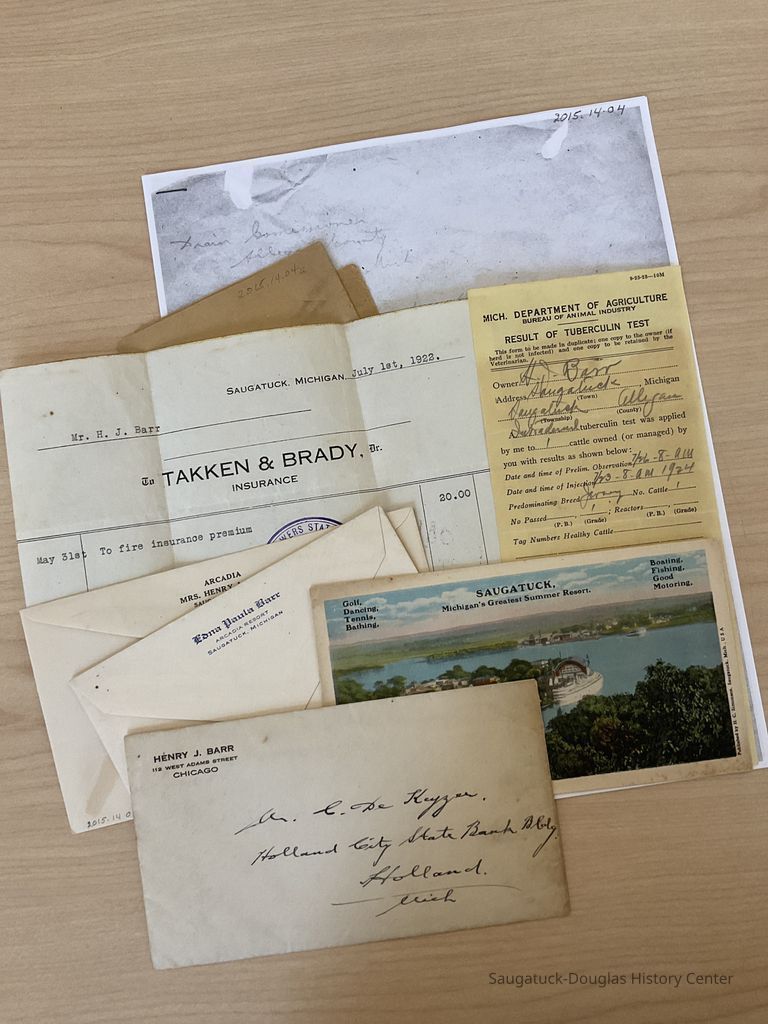 2015.14-04
Drain Commissioner
2015.14.04a
SAUGATUCK, MICHIGAN, July 1st, 1922.
Mr. H. J. Barr
To TAKKEN & BRADY, Dr.
INSURANCE
20.00
May 31st To fire insurance premium
8-23-23—10M
MICH. DEPARTMENT OF AGRICULTURE
BUREAU OF ANIMAL INDUSTRY
RESULT OF TUBERCULIN TEST
This form to be made in duplicate; one copy to the owner (if
herd is not infected) and one copy to be retained by the
Veterinarian.
Owner H. J. Barr
Address Saugatuck, Michigan
(Town)
Saugatuck Allegan
(Township) (County)
Intradermal tuberculin test was applied
by me to 1 cattle owned (or managed) by
you with results as shown below:
Date and time of Prelim. Observation 7/26-8-AM
Date and time of Injection 7/23-8-AM 1924
Predominating Breed Jersey No. Cattle 1
No Passed 1 ; Reactors
(P. B.) (Grade) (P. B.) (Grade)
Tag Numbers Healthy Cattle
ARCADIA
MRS. HENRY
Edna Paula Barr
ARCADIA RESORT
SAUGATUCK, MICHIGAN
2015.14.0
Golf,
Dancing,
Tennis,
Bathing,
SAUGATUCK,
Michigan's Greatest Summer Resort.
Boating,
Fishing,
Good
Motoring,
HENRY J. BARR
112 WEST ADAMS STREET
CHICAGO
Mr. C. De Keyzer,
Holland City State Bank Bldg.
Holland.
Mich
Saugatuck-Douglas History Center